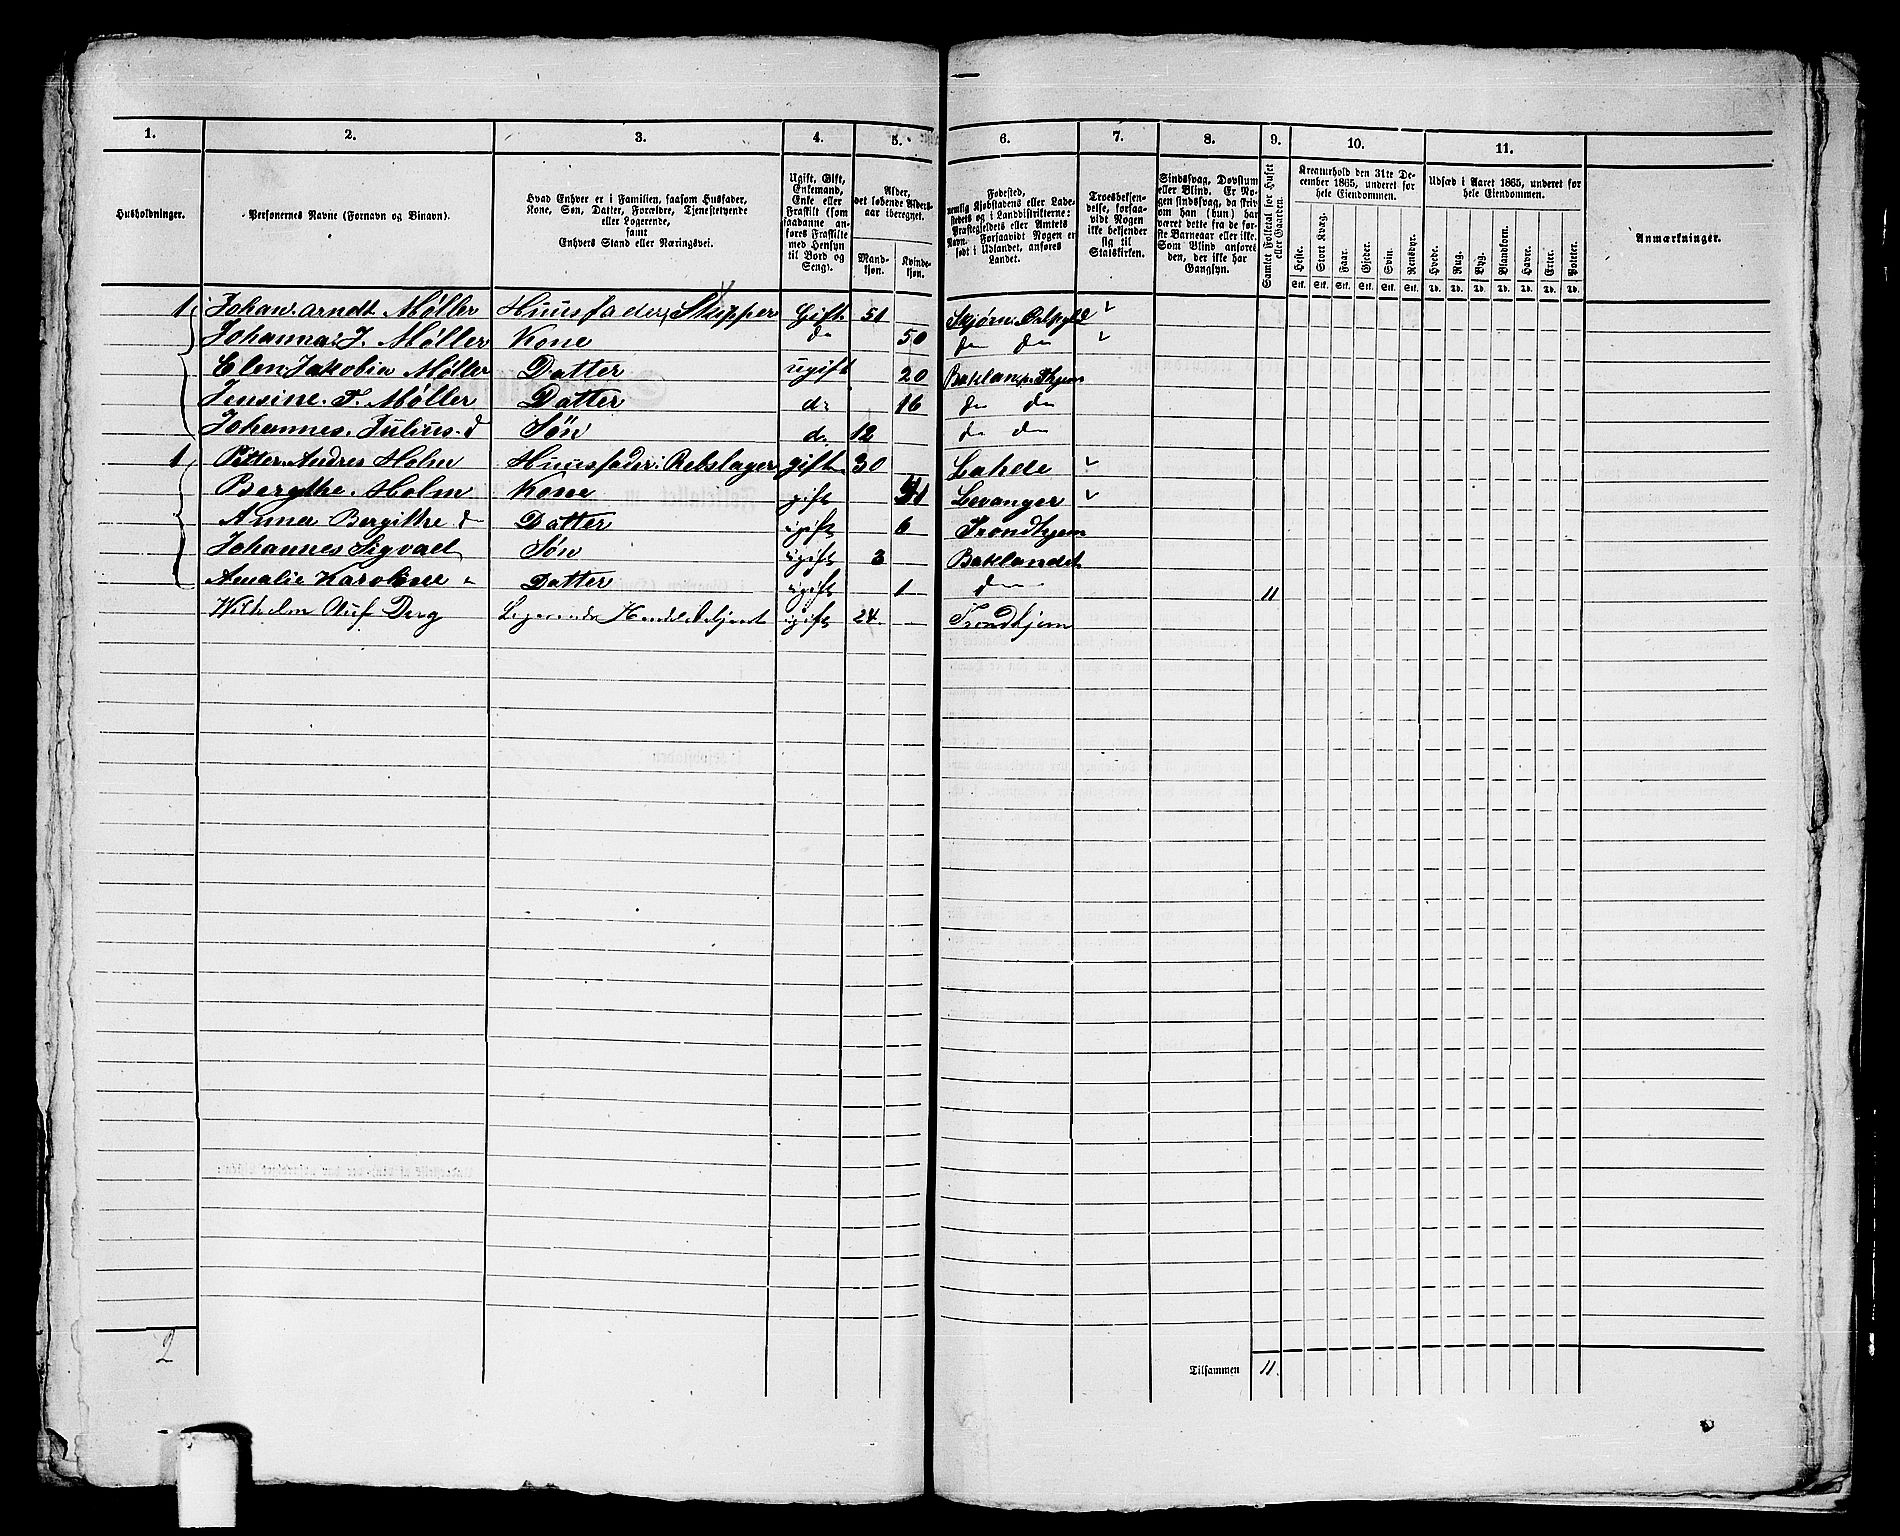 1. 2. 3. 4. 5. 6. 7. 8. 9. 10. 11.
Husholdninger.
Personernes Navne (Fornavn og Binavn).
Hvad Enhver er i Familien, saasom Husfader, Kone, Søn, Datter, Forældre, Tjenestetyende eller Logerende, samt Enhvers Stand eller Næringsvei.
Ugift, Gift, Enkemand, Enke eller Fraskilt (som saadanne anføres Fraskilte med Hensyn til Bord og Seng).
Alder, det løbende Aldersaar iberegnet.
Mandkjøn. Kvindekjøn.
Fødested, nemlig Kjøbstadens eller Ladestedets og i Landdistrikterne: Præstegjeldets eller Amtets Navn. Forsaavidt Nogen er født i Udlandet, anføres Landet.
Troesbekjendelse, forsaavidt Nogen ikke bekjender sig til Statskirken.
Sindssvag, Døvstum eller Blind. Er Nogen sindssvag, da skrives om han (hun) har været dette fra de første Barneaar eller ikke. Som Blind anføres den, der ikke har Gangsyn.
Samlet Folketal for Huset eller Gaarden.
Kreaturhold den 31te December 1865, underet for hele Eiendommen.
Heste. Stort Kvæg. Faar. Gjeder. Svin. Rensdyr.
Stk. Stk. Stk. Stk. Stk. Stk.
Udsæd i Aaret 1865, underet for hele Eiendommen.
Hvede. Rug. Byg. Blandkorn. Havre. Erter. Poteter.
Td. Td. Td. Td. Td. Td. Td.
Anmærkninger.
1 Johan Arndt Møller Huusfader, Skipper Gift 51 Skjørn
Johanna J. Møller Kone do 50 do do
Elen Jakobia Møller Datter ugift 20
Jensine. F. Møller Datter do 16 do do
Johannes. Julius. d Søn do 12 do do
1 Petter Andres Holm Huusfader: Rebslager gift 30
Bergithe. Holm Kone gift Levanger
Anne Bergithe d Datter ugift 6 Trondhjem
Johannes Sigvart Søn ugift 3 Baklandet
Amalie Karoline Datter ugift 1 do 11
Wilhelm ugift 24 Trondhjem
2
Tilsammen 11.